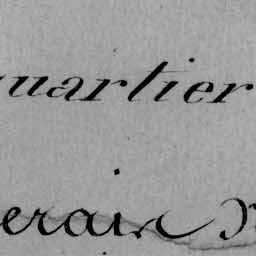 quartier
erain